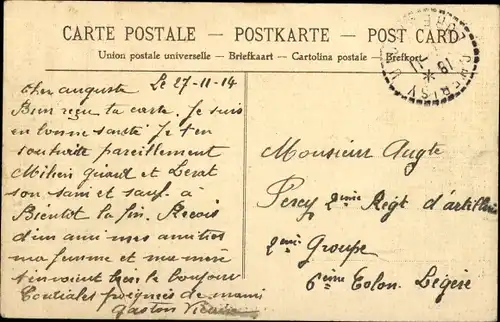 CARTE POSTALE — POSTKARTE — POST CARD
Union postale universelle — Briefkaart — Cartolina postale — Brefkort
Cher auguste Le 27-11-14
Bien reçu ta carte. Je suis
en bonne santé Je t'en
souhaite pareillement
Milien giraud et Lerat
son sain et sauf. à
Bientot la fin. Recois
d'un ami mes amities
ma femme et ma mère
t'envoient bien le bonjour
Cordiales poignées de main
Gaston
Monsieur Augte
Percy 2ème Régt d'artillerie
2ème Groupe
6ème Colon. Légère